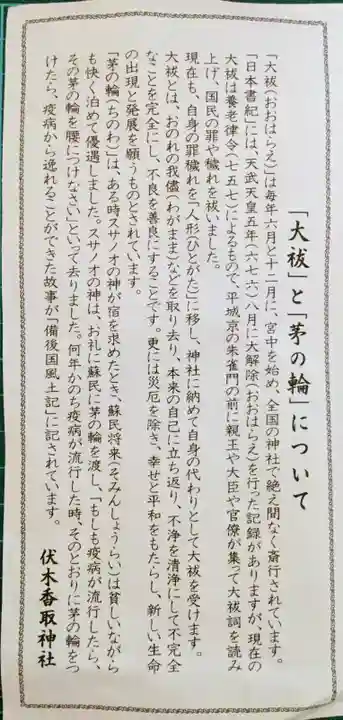 「大祓」と「茅の輪」について
「大祓(おおはらえ)」は毎年六月と十二月に、宮中を始め、全国の神社で絶え間なく斎行されています。
「日本書紀」には、天武天皇五年(六七六)八月に大解除(おおはらえ)を行った記録がありますが、現在の
大祓は養老律令(七五七)によるもので、平城京の朱雀門の前に親王や大臣や官僚が集って大祓詞を読み
上げ、国民の罪や穢れを祓いました。
現在も、自身の罪穢れを「人形(ひとがた)」に移し、神社に納めて自身の代わりとして大祓を受けます。
大祓とは、おのれの我儘(わがまま)などを取り去り、本来の自己に立ち返り、不浄を清浄にして不完全
なことを完全にし、不良を善良にすることです。更には災厄を除き、幸せと平和をもたらし、新しい生命
の出現と発展を願うものとされています。
「茅の輪(ちのわ)」は、ある時スサノオの神が宿を求めたとき、蘇民将来(そみんしょうらい)は貧しいながら
も快く泊めて優遇しました。スサノオの神は、お礼に蘇民に茅の輪を渡し、「もしも疫病が流行したら、
その茅の輪を腰につけなさい」といって去りました。何年かのち疫病が流行した時、そのとおりに茅の輪をつ
けたら、疫病から逸れることができた故事が「備後国風土記」に記されています。
伏木香取神社